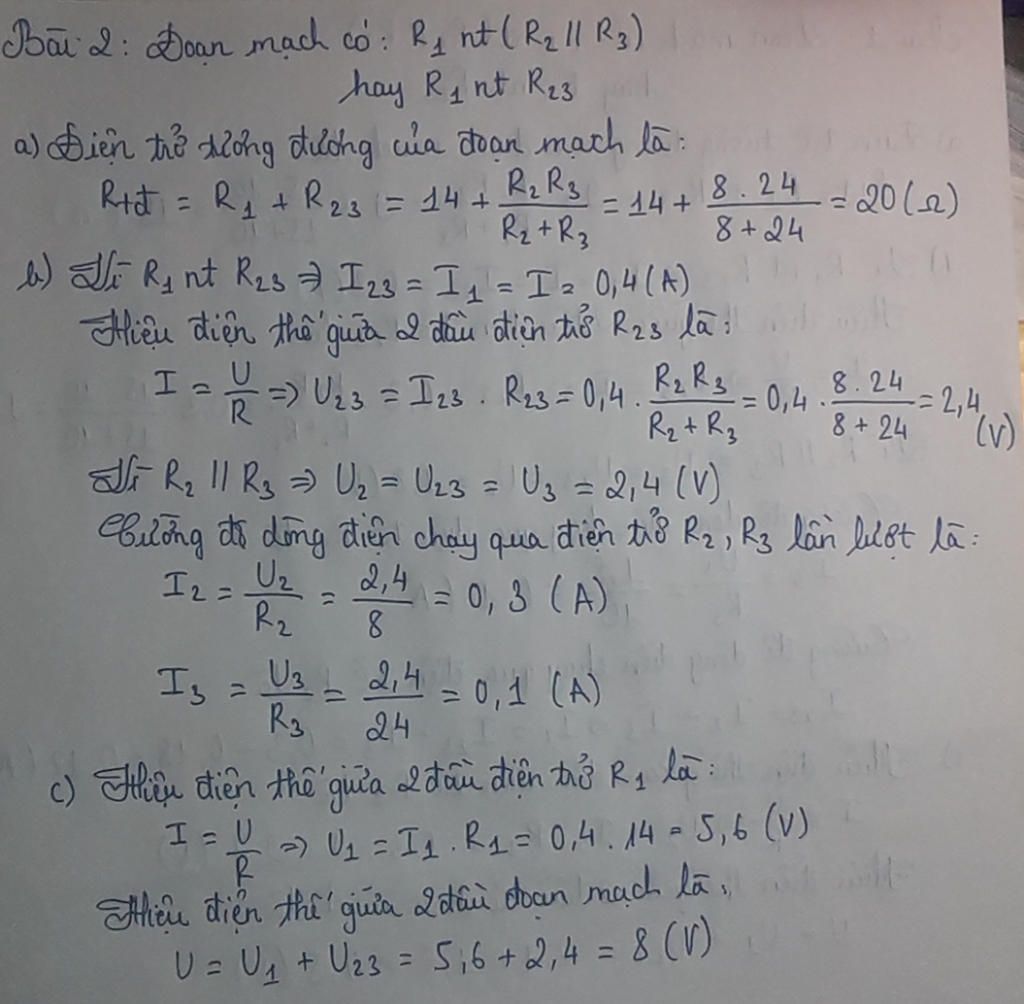 Bài 2: Đoạn mạch có: R₁ nt (R₂ // R₃)
hay R₁ nt R₂₃
a) Điện trở tương đương của đoạn mạch là:
Rtđ = R₁ + R₂₃ = 14 + (R₂R₃)/(R₂+R₃) = 14 + (8.24)/(8+24) = 20 (Ω)
b) Vì R₁ nt R₂₃ => I₂₃ = I₁ = I = 0,4 (A)
Hiệu điện thế giữa 2 đầu điện trở R₂₃ là:
I = U/R => U₂₃ = I₂₃ . R₂₃ = 0,4 . (R₂R₃)/(R₂+R₃) = 0,4 . (8.24)/(8+24) = 2,4 (V)
Vì R₂ // R₃ => U₂ = U₂₃ = U₃ = 2,4 (V)
Cường độ dòng điện chạy qua điện trở R₂, R₃ lần lượt là:
I₂ = U₂/R₂ = 2,4/8 = 0,3 (A)
I₃ = U₃/R₃ = 2,4/24 = 0,1 (A)
c) Hiệu điện thế giữa 2 đầu điện trở R₁ là:
I = U/R => U₁ = I₁ . R₁ = 0,4 . 14 = 5,6 (V)
Hiệu điện thế giữa 2 đầu đoạn mạch là:
U = U₁ + U₂₃ = 5,6 + 2,4 = 8 (V)